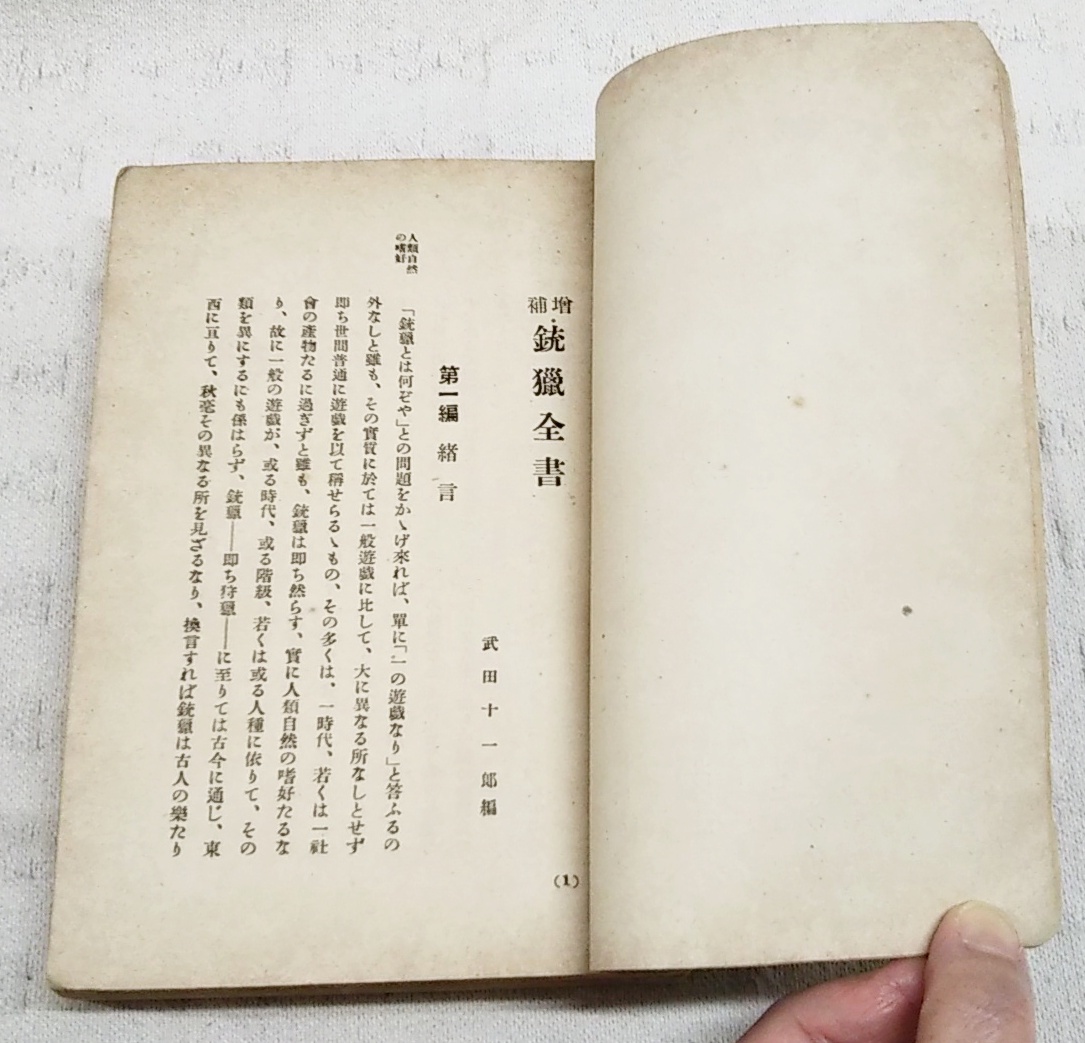 增補銃獵全書
武田十一郞編
第一編 緖言
人類自然
の嗜好
「銃獵とは何ぞや」との問題をかゝげ來れば、單に「一の遊戯なり」と答ふるの
外なしと雖も、その實質に於ては一般遊戯に比して、大に異なる所なしとせず
即ち世間普通に遊戯を以て稱せらるゝもの、その多くは、一時代、若くは一社
會の產物たるに過ぎずと雖も、銃獵は即ち然らす、實に人類自然の嗜好たるな
り、故に一般の遊戯が、或る時代、或る階級、若くは或る人種に依りて、その
類を異にするにも係はらず、銃獵――即ち狩獵――に至りては古今に通じ、東
西に亘りて、秋毫その異なる所を見ざるなり、換言すれば銃獵は古人の樂たり
(1)